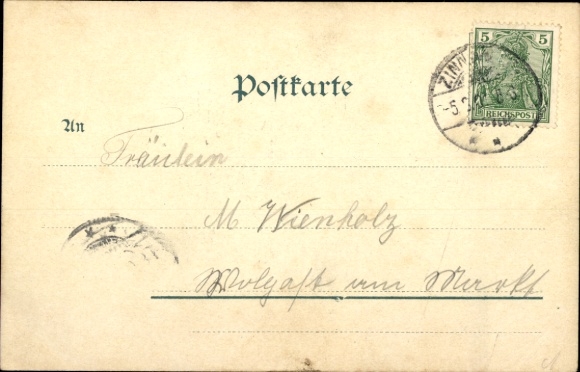 5 5
REICHSPOST
ZINN
-5.2
Postkarte
An
Fräulein
M Wienholz
Wolgast am Markt